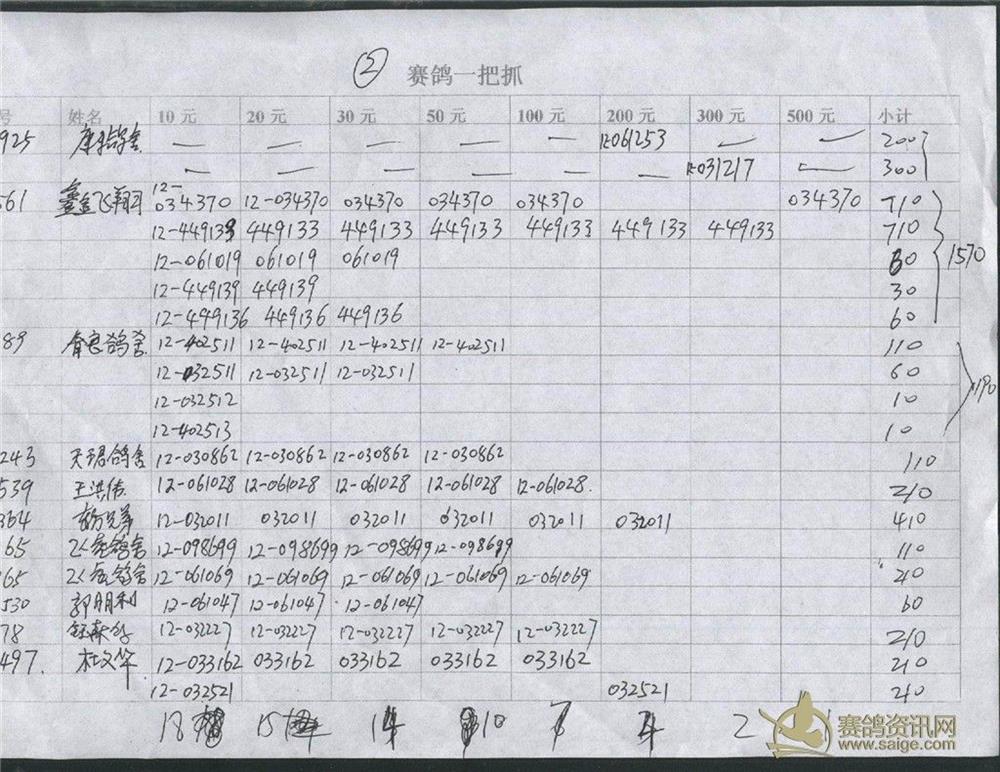 ② 赛鸽一把抓
号 姓名 10元 20元 30元 50元 100元 200元 300元 500元 小计
925 康 鸽舍 — — — — — 12-061253 — — 200
— — — — — — 12-031217 — 300
561 鑫鑫飞翔 12-034370 12-034370 034370 034370 034370 034370 710
12-449133 449133 449133 449133 449133 449133 449133 710
12-061019 061019 061019 60
1570
12-449139 449139 30
12-449136 449136 449136 60
89 鸽舍 12-402511 12-402511 12-402511 12-402511 110
12-032511 12-032511 12-032511 60
190
12-032512 10
12-402513 10
243 鸽舍 12-030862 12-030862 12-030862 12-030862 110
539 王洪伟 12-061028 12-061028 12-061028 12-061028 12-061028. 210
364 兄弟 12-032011 032011 032011 032011 032011 032011 410
65 鸽舍 12-098699 12-098699 12-098699 12-098699 110
65 鸽舍 12-061069 12-061069 12-061069 12-061069 12-061069 210
530 郭朋利 12-061047 12-061047 12-061047 60
78 12-032227 12-032227 12-032227 12-032227 12-032227 210
497. 杜文华 12-033162 033162 033162 033162 033162 210
12-032521 032521 210
18 15 14 10 7 4 2 1
赛鸽资讯网
www.saige.com